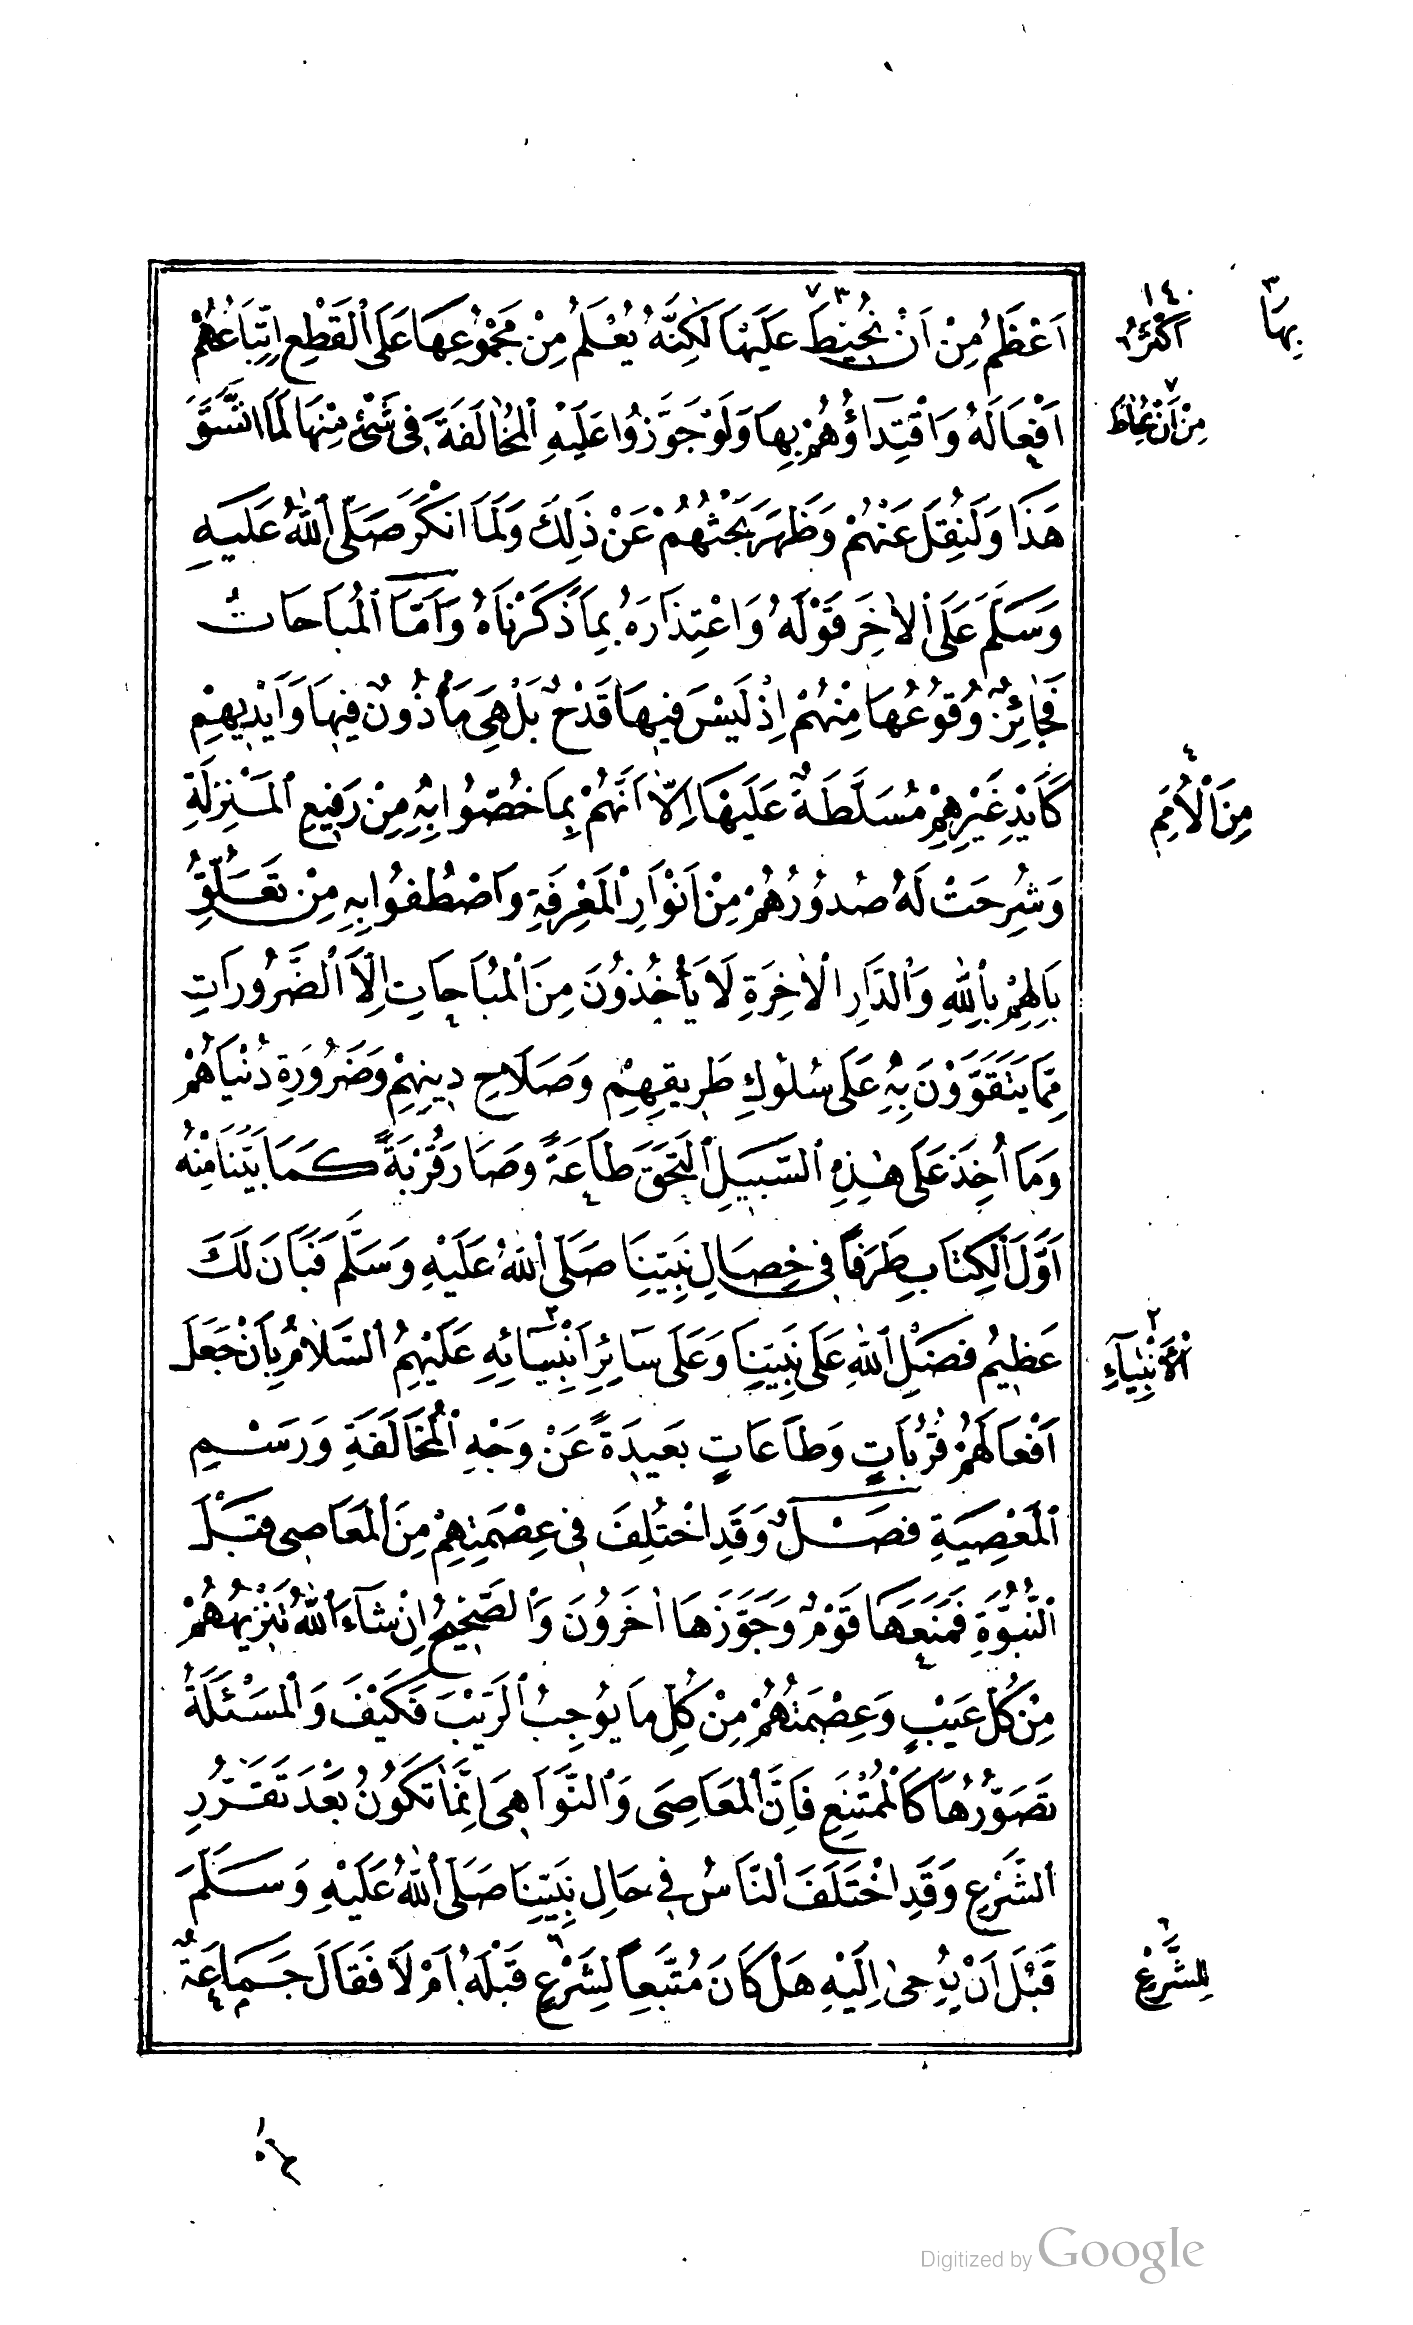 ١٤٠
اَعْظَمُ مِنْ اَنْ نُحِيطَ عَلَيْهَا لٰكِنَّهُ يُعْلَمُ مِنْ مَجْمُوعِهَا عَلَى الْقَطْعِ اِتِّبَاعُهُمْ
اَفْعَالَهُ وَاقْتِدَاؤُهُمْ بِهَا وَلَوْ جَوَّزُوا عَلَيْهِ الْمُخَالَفَةَ فِى شَىْءٍ مِنْهَا لَمَا اتَّسَقَ
هَذَا وَلَنُقِلَ عَنْهُمْ وَظَهَرَ بَحْثُهُمْ عَنْ ذَلِكَ وَلَمَا اَنْكَرَ صَلَّى اللهُ عَلَيْهِ
وَسَلَّمَ عَلَى الْاٰخَرِ قَوْلَهُ وَاعْتِذَارَهُ بِمَا ذَكَرْنَاهُ وَاَمَّا الْمُبَاحَاتُ
فَجَائِزٌ وُقُوعُهَا مِنْهُمْ اِذْ لَيْسَ فِيهَا قَدْحٌ بَلْ هِىَ مَأْذُونٌ فِيهَا وَاَيْدِيهِمْ
كَاَيْدِى غَيْرِهِمْ مُسَلَّطَةٌ عَلَيْهَا اِلَّا اَنَّهُمْ بِمَا خُصُّوا بِهِ مِنْ رَفِيعِ الْمَنْزِلَةِ
وَشُرِحَتْ لَهُ صُدُورُهُمْ مِنْ اَنْوَارِ الْمَعْرِفَةِ وَاصْطُفُوا بِهِ مِنْ تَعَلُّقِ
بَالِهِمْ بِاللهِ وَالدَّارِ الْاٰخِرَةِ لَا يَأْخُذُونَ مِنَ الْمُبَاحَاتِ اِلَّا الضَّرُورَاتِ
مِمَّا يَتَقَوَّوْنَ بِهِ عَلَى سُلُوكِ طَرِيقِهِمْ وَصَلَاحِ دِينِهِمْ وَضَرُورَةِ دُنْيَاهُمْ
وَمَا اُخِذَ عَلَى هٰذِهِ السَّبِيلِ الْتَحَقَ طَاعَةً وَصَارَ قُرْبَةً كَمَا بَيَّنَّا مِنْهُ
اَوَّلَ الْكِتَابِ طَرَفًا فِى خِصَالِ نَبِيِّنَا صَلَّى اللهُ عَلَيْهِ وَسَلَّمَ فَبَانَ لَكَ
عَظِيمُ فَضْلِ اللهِ عَلَى نَبِيِّنَا وَعَلَى سَائِرِ اَنْبِيَائِهِ عَلَيْهِمُ السَّلَامُ بِاَنْ جَعَلَ
اَفْعَالَهُمْ قُرُبَاتٍ وَطَاعَاتٍ بَعِيدَةً عَنْ وَجْهِ الْمُخَالَفَةِ وَرَسْمِ
الْمَعْصِيَةِ فَصْلٌ وَقَدِ اخْتُلِفَ فِى عِصْمَتِهِمْ مِنَ الْمَعَاصِى قَبْلَ
النُّبُوَّةِ فَمَنَعَهَا قَوْمٌ وَجَوَّزَهَا اٰخَرُونَ وَالصَّحِيحُ اِنْ شَاءَ اللهُ تَنْزِيهُهُمْ
مِنْ كُلِّ عَيْبٍ وَعِصْمَتُهُمْ مِنْ كُلِّ مَا يُوجِبُ الرَّيْبَ فَكَيْفَ وَالْمَسْئَلَةُ
تَصَوُّرُهَا كَالْمُمْتَنِعِ فَاِنَّ الْمَعَاصِىَ وَالنَّوَاهِىَ اِنَّمَا تَكُونُ بَعْدَ تَقَرُّرِ
الشَّرْعِ وَقَدِ اخْتَلَفَ النَّاسُ فِى حَالِ نَبِيِّنَا صَلَّى اللهُ عَلَيْهِ وَسَلَّمَ
قَبْلَ اَنْ يُوحٰى اِلَيْهِ هَلْ كَانَ مُتَّبِعًا لِشَرْعٍ قَبْلَهُ اَمْ لَا فَقَالَ جَمَاعَةٌ
٣
بِهَا
اَكْثَرُ
٧
مِنْ اَنْ يُحَاطَ
٤
مِنَ الْاُمَمِ
٢
الْاَنْبِيَاءِ
٦
لِلشَّرْعِ
Digitized by Google